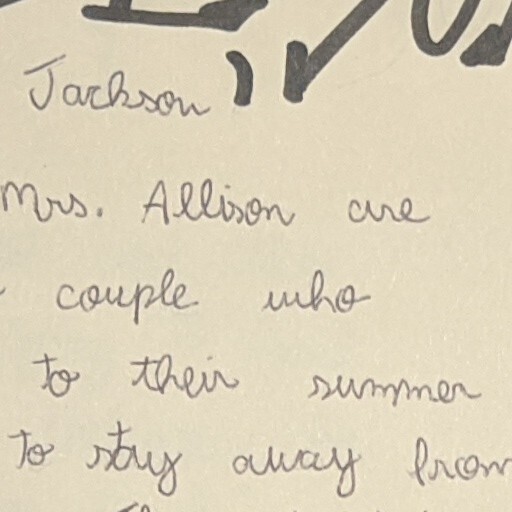 Jackson
Mrs. Allison are
couple who
to their summer
to stay away from